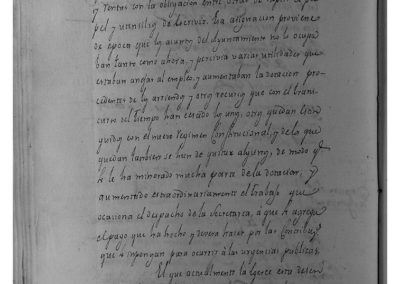 y rentas con la obligacion entre otras de suplir el pa-
pel y utensilios de escrivir. Esta asignacion proviene
de epoca que los asuntos del Ayuntamiento no le ocupa-
ban tanto como ahora, y percivia varias utilidades que
estaban anejas al empleo, y aumentaban la dotacion pro-
cedentes de los arriendos y otros recursos que con el trans-
curso del tiempo han cesado los unos, otros quedan extin-
guidos con el nuevo Regimen Constitucional, y de los que
quedan tambien se han de quitar algunos, de modo q.
se le ha minorado mucha parte de la dotacion, y
aumentado extraordinariamente el trabajo que
ocasiona el despacho de la Secretaria, a que se agrega
el pago que ha hecho y devera hacer por las Contribuc.
que se impongan para ocurrir á las urgencias publicas.
El que actualmente la egerce esta desem